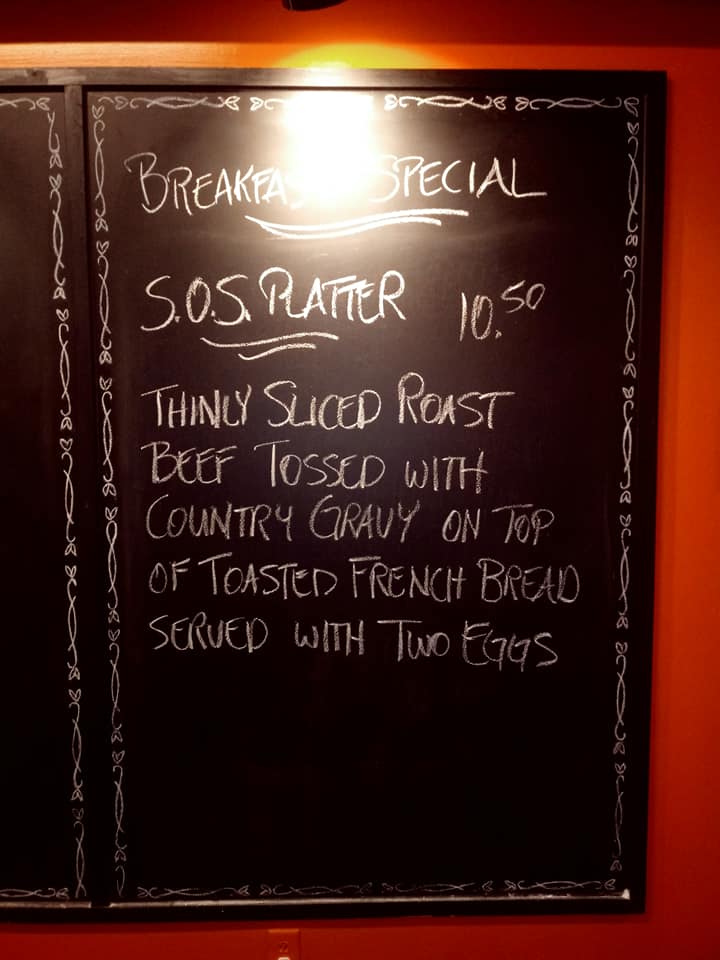 BREAKFAST SPECIAL
S.O.S. PLATTER 10.50
THINLY SLICED ROAST
BEEF TOSSED WITH
COUNTRY GRAVY ON TOP
OF TOASTED FRENCH BREAD
SERVED WITH TWO EGGS